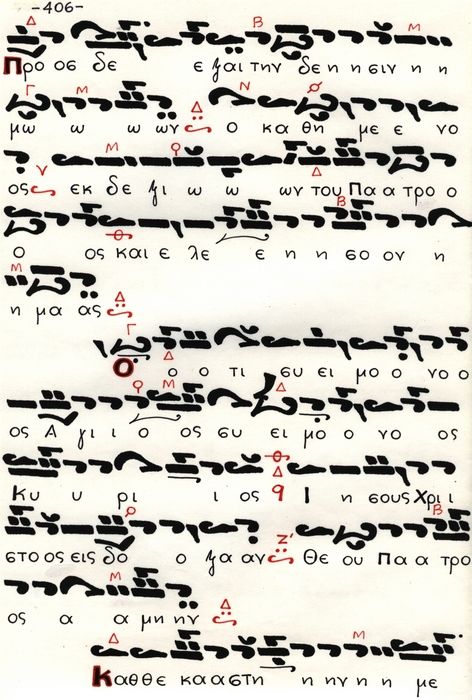 -406-
Προ οσ δε ε ξαι την δε η η σιν η η
μω ω ω ων ο κα θη με ε νο
ος εκ δε ξι ω ω ων του Πα α τρο ο
ο ος και ε λε ε η η σο ον η
η μα ας
Ο ο ο τι συ ει μο ο νο ο
ος Α γι ι ο ος συ ει μο ο νο ος
Κυ υ ρι ι ος Ι η σους Χρι ι
στο ος εις δο ο ξα αν Θε ου Πα α τρο
ος α α μη ην
Καθ θε κα α στη η ην η η με